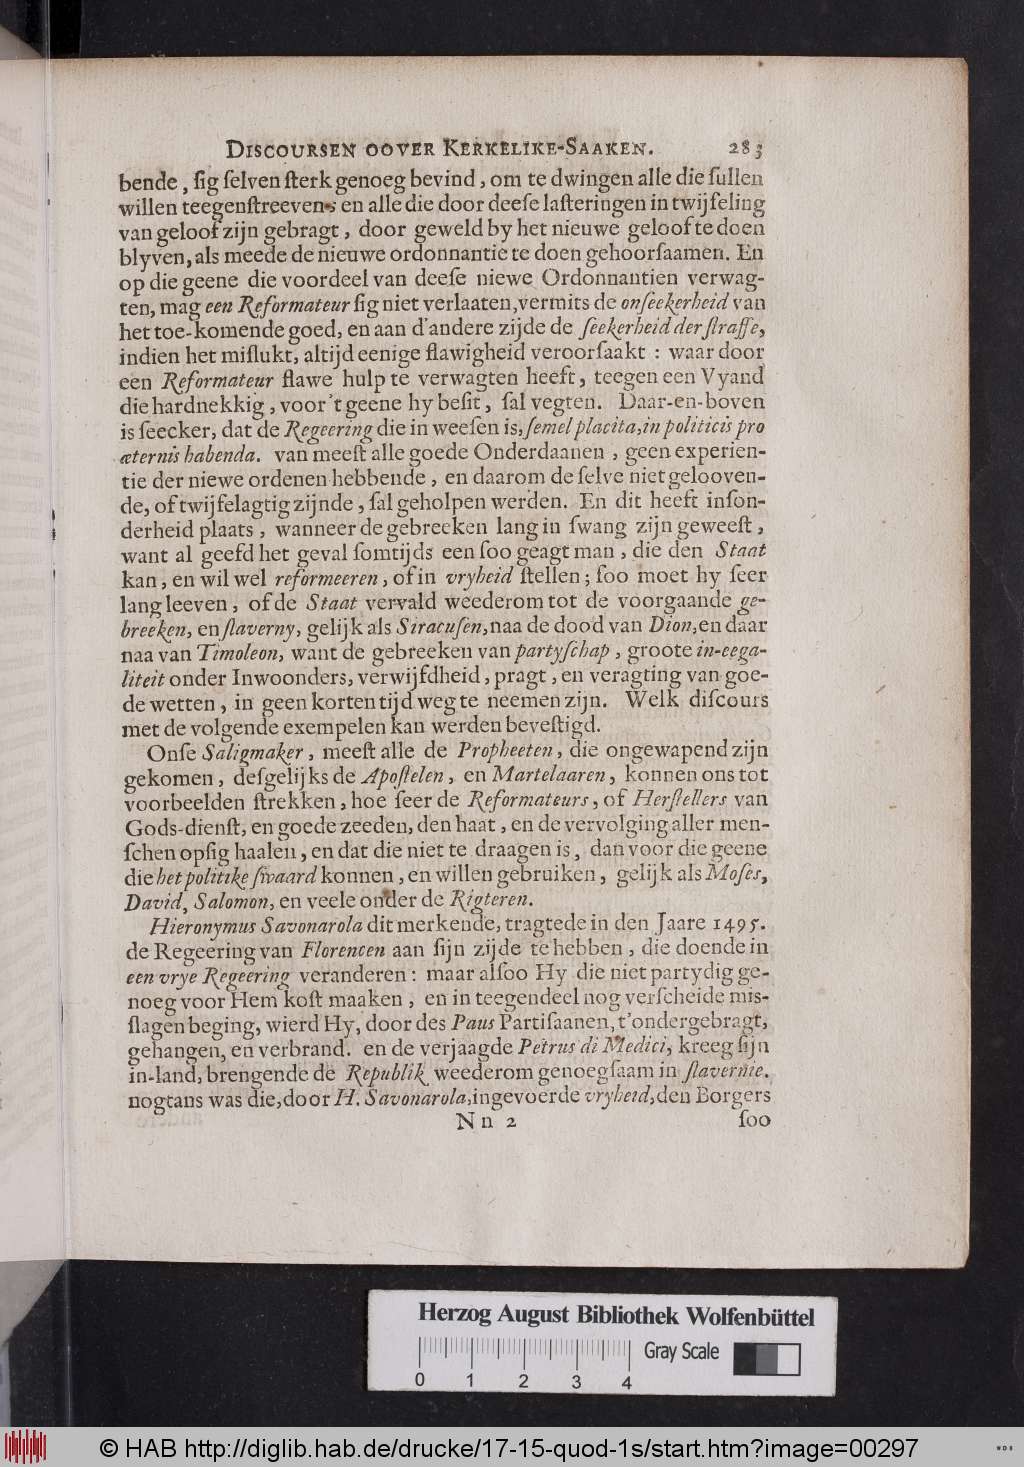 DISCOURSEN OOVER KERKELIKE-SAAKEN. 283
bende, ſig ſelven ſterk genoeg bevind, om te dwingen alle die ſullen
willen teegenſtreeven; en alle die door deeſe laſteringen in twijfeling
van geloof zijn gebragt, door geweld by het nieuwe geloof te doen
blyven, als meede de nieuwe ordonnantie te doen gehoorſaamen. En
op die geene die voordeel van deeſe niewe Ordonnantien verwag-
ten, mag een Reformateur ſig niet verlaaten, vermits de onſeekerheid van
het toe-komende goed, en aan d'andere zijde de ſeekerheid der ſtraffe,
indien het miſlukt, altijd eenige flawigheid veroorſaakt : waar door
een Reformateur flawe hulp te verwagten heeft, teegen een Vyand
die hardnekkig, voor 't geene hy beſit, ſal vegten. Daar-en-boven
is ſeecker, dat de Regeering die in weeſen is, ſemel placita, in politicis pro
æternis habenda. van meeſt alle goede Onderdaanen, geen experien-
tie der niewe ordenen hebbende, en daarom de ſelve niet gelooven-
de, of twijfelagtig zijnde, ſal geholpen werden. En dit heeft inſon-
derheid plaats, wanneer de gebreeken lang in ſwang zijn geweeſt,
want al geefd het geval ſomtijds een ſoo geagt man, die den Staat
kan, en wil wel reformeeren, of in vryheid ſtellen; ſoo moet hy ſeer
lang leeven, of de Staat vervald weederom tot de voorgaande ge-
breeken, en ſlaverny, gelijk als Siracuſen, naa de dood van Dion, en daar
naa van Timoleon, want de gebreeken van partyſchap, groote in-eega-
liteit onder Inwoonders, verwijfdheid, pragt, en veragting van goe-
de wetten, in geen korten tijd weg te neemen zijn. Welk diſcours
met de volgende exempelen kan werden beveſtigd.
Onſe Saligmaker, meeſt alle de Propheeten, die ongewapend zijn
gekomen, deſgelijks de Apoſtelen, en Martelaaren, konnen ons tot
voorbeelden ſtrekken, hoe ſeer de Reformateurs, of Herſtellers van
Gods-dienſt, en goede zeeden, den haat, en de vervolging aller men-
ſchen opſig haalen, en dat die niet te draagen is, dan voor die geene
die het politike ſwaard konnen, en willen gebruiken, gelijk als Moſes,
David, Salomon, en veele onder de Rigteren.
Hieronymus Savonarola dit merkende, tragtede in den Jaare 1495.
de Regeering van Florencen aan ſijn zijde te hebben, die doende in
een vrye Regeering veranderen : maar alſoo Hy die niet partydig ge-
noeg voor Hem koſt maaken, en in teegendeel nog verſcheide mis-
ſlagen beging, wierd Hy, door des Paus Partiſaanen, t'ondergebragt,
gehangen, en verbrand. en de verjaagde Petrus di Medici, kreeg ſijn
in-land, brengende de Republik weederom genoegſaam in ſlavernie.
nogtans was die, door H. Savonarola, ingevoerde vryheid, den Borgers
N n 2 ſoo
Herzog August Bibliothek Wolfenbüttel
Gray Scale
0 1 2 3 4
© HAB http://diglib.hab.de/drucke/17-15-quod-1s/start.htm?image=00297